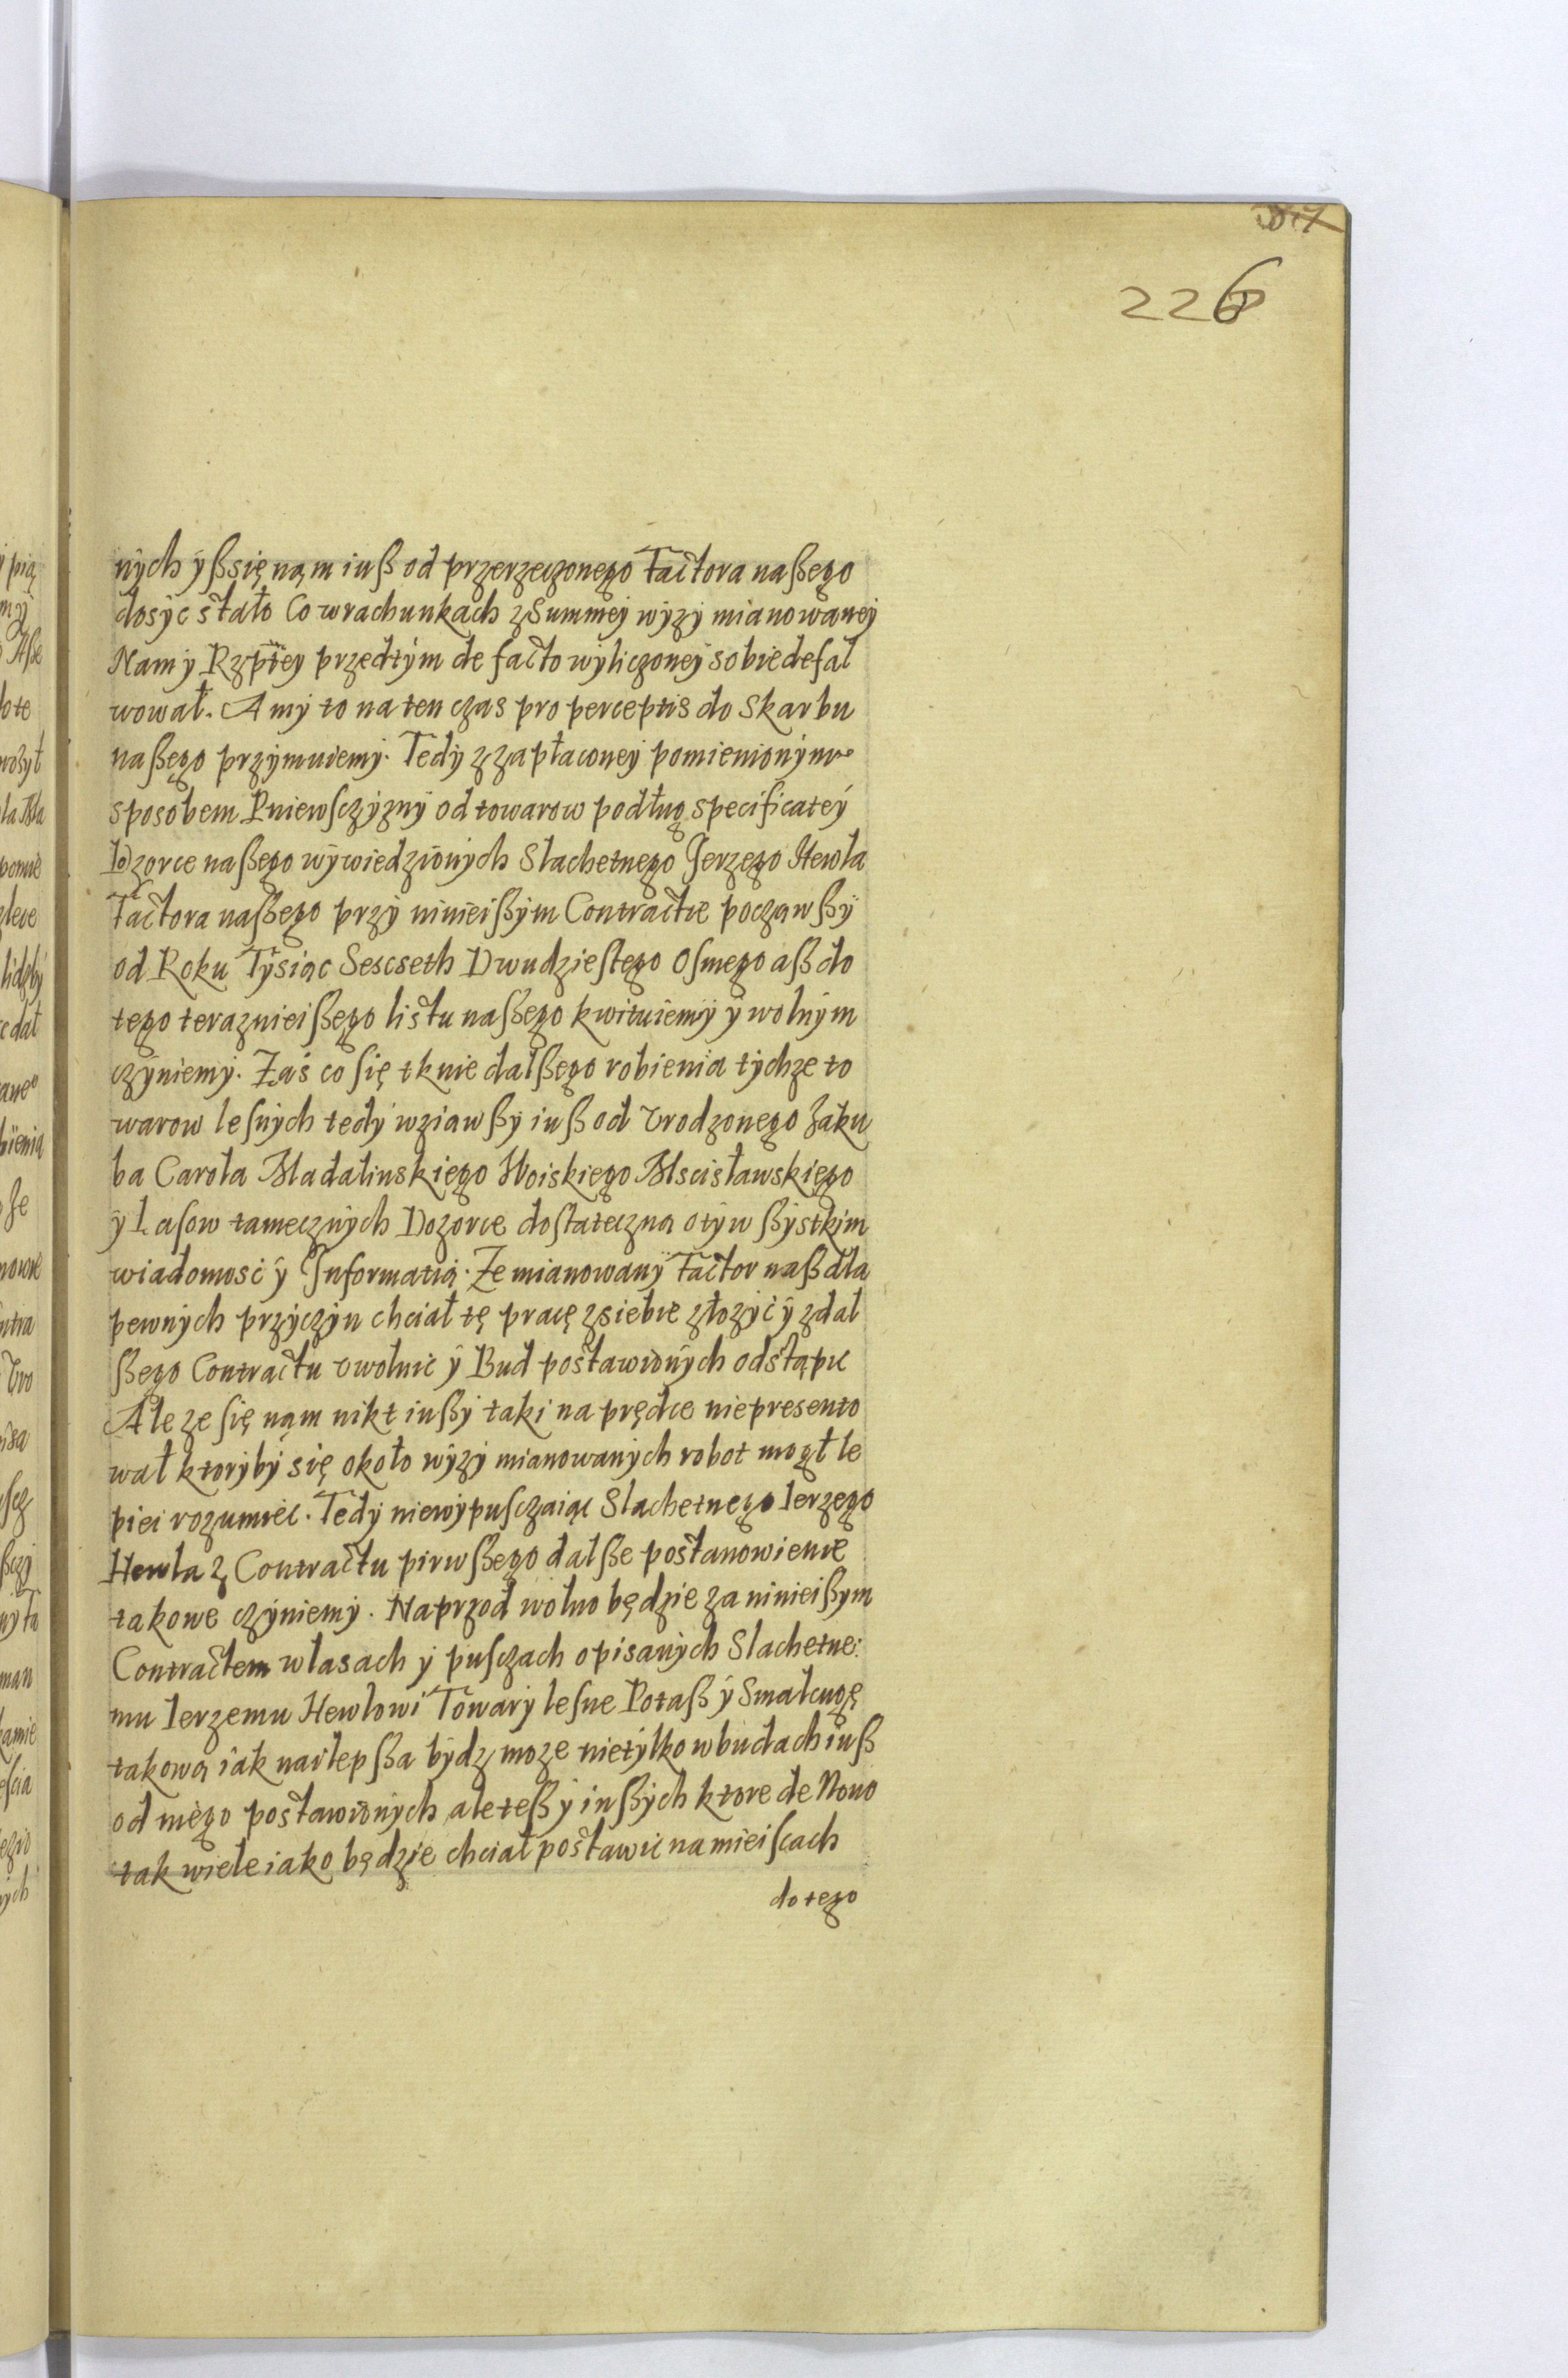 226
nych yß się nąm iuß od przerzeczonego Factora naßego
dosyc stało Co wrachunkach z Summey wyzy mianowaney
Nam y Rzptey przedtym de facto wyliczoney sobie defal
wował. A my to na ten czas pro perceptis do Skarbu
naßego przymuiemy. Tedy z zapłaconey pomienionym
sposobem Pniewsczyzny od towarow podług specificatey
Dozorce naßego wywiedzionych Slachetnego Jerzego Hewla
Factora naßego przy ninieißym Contractie począwßy
od Roku Tysiąc Sescseth Dwudziestego Osmego aß do
tego teraznieißego listu naßego kwituiemy y wolnym
czyniemy. Zaś co się tknie dalßego robienia tychze to
warow lesnych tedy wziawßy iuß od Vrodzonego Jaku
ba Carola Madalinskiego Woiskiego Mscisławskiego
y Lasow tamecznych Dozorce dostateczną o tyw ßystkim
wiadomość y Informatią. Ze mianowany Factor naß dla
pewnych przyczyn chciał tę pracę z siebie złozyć y z dal
ßego Contractu vwolnic y Bud postawionych odstąpic
Ale ze się nąm nikt inßy taki na prędce nie presento
wał ktoryby się około wyzy mianowanych robot mogł le
piei rozumiec. Tedy niewypusczaiąc Slachetnego Ierzego
Hewla z Contractu pirwßego dalße postanowienie
takowe czyniemy. Naprzod wolno będzie za ninieißym
Contractem wlasach y pusczach opisanych Slachetne:
mu Ierzemu Hewlowi Towary lesne Potaß y Smalcugę
takową iak nailepßa bydz moze nietylko wbudach iuß
od niego postawionych ale teß y inßych ktore de Novo
tak wiele iako będzie chciał postawic na mieiscach
do tego